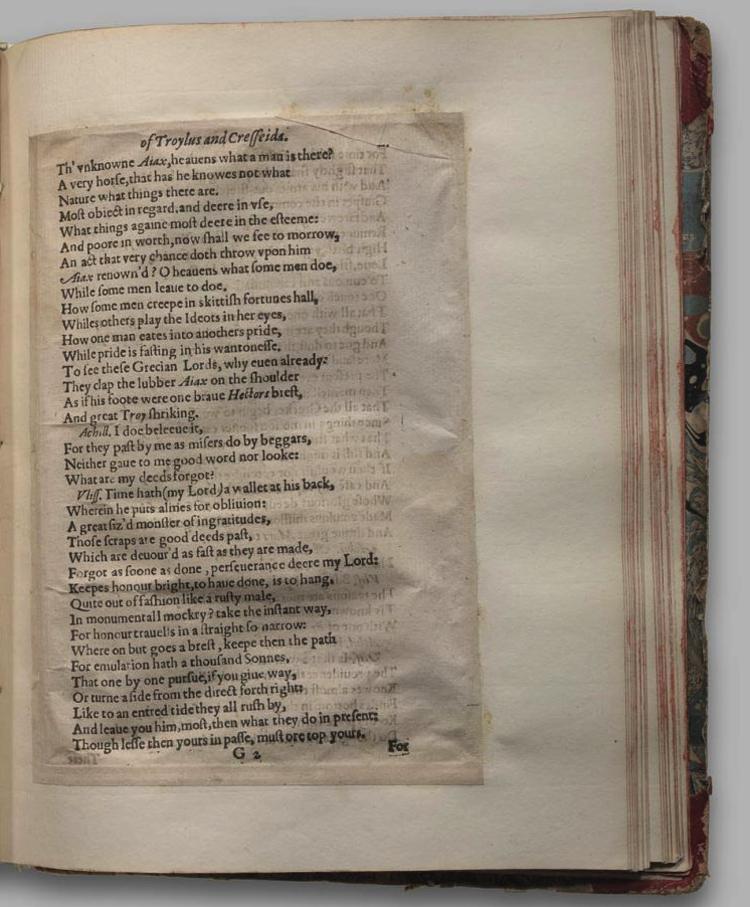 of Troylus and Creſſeida.
Th' vnknowne Aiax, heauens what a man is there?
A very horſe, that has he knowes not what
Nature what things there are.
Moſt obiect in regard, and deere in vſe,
What things againe moſt deere in the eſteeme:
And poore in worth, now ſhall we ſee to morrow,
An act that very chance doth throw vpon him
Aiax renown'd? O heauens what ſome men doe,
While ſome men leaue to doe.
How ſome men creepe in skittiſh fortunes hall,
Whiles others play the Ideots in her eyes,
How one man eates into anothers pride,
While pride is faſting in his wantoneſſe.
To ſee theſe Grecian Lords, why euen already:
They clap the lubber Aiax on the ſhoulder
As if his foote were one braue Hectors breſt,
And great Troy ſhriking.
Achill. I doe beleeue it,
For they paſt by me as miſers do by beggars,
Neither gaue to me good word nor looke:
What are my deeds forgot?
Vliſſ. Time hath (my Lord) a wallet at his back,
Wherein he puts almes for obliuion:
A great ſiz'd monſter of ingratitudes,
Thoſe ſcraps are good deeds paſt,
Which are deuour'd as faſt as they are made,
Forgot as ſoone as done, perſeuerance deere my Lord:
Keepes honour bright, to haue done, is to hang,
Quite out of faſhion like a ruſty male,
In monumentall mockry? take the inſtant way,
For honour trauells in a ſtraight ſo narrow:
Where on but goes a breſt, keepe then the path
For emulation hath a thouſand Sonnes,
That one by one purſue, if you giue way,
Or turne aſide from the direct forth right:
Like to an entred tide they all ruſh by,
And leaue you him, moſt, then what they do in preſent:
Though leſſe then yours in paſſe, muſt ore top yours.
G 2
For